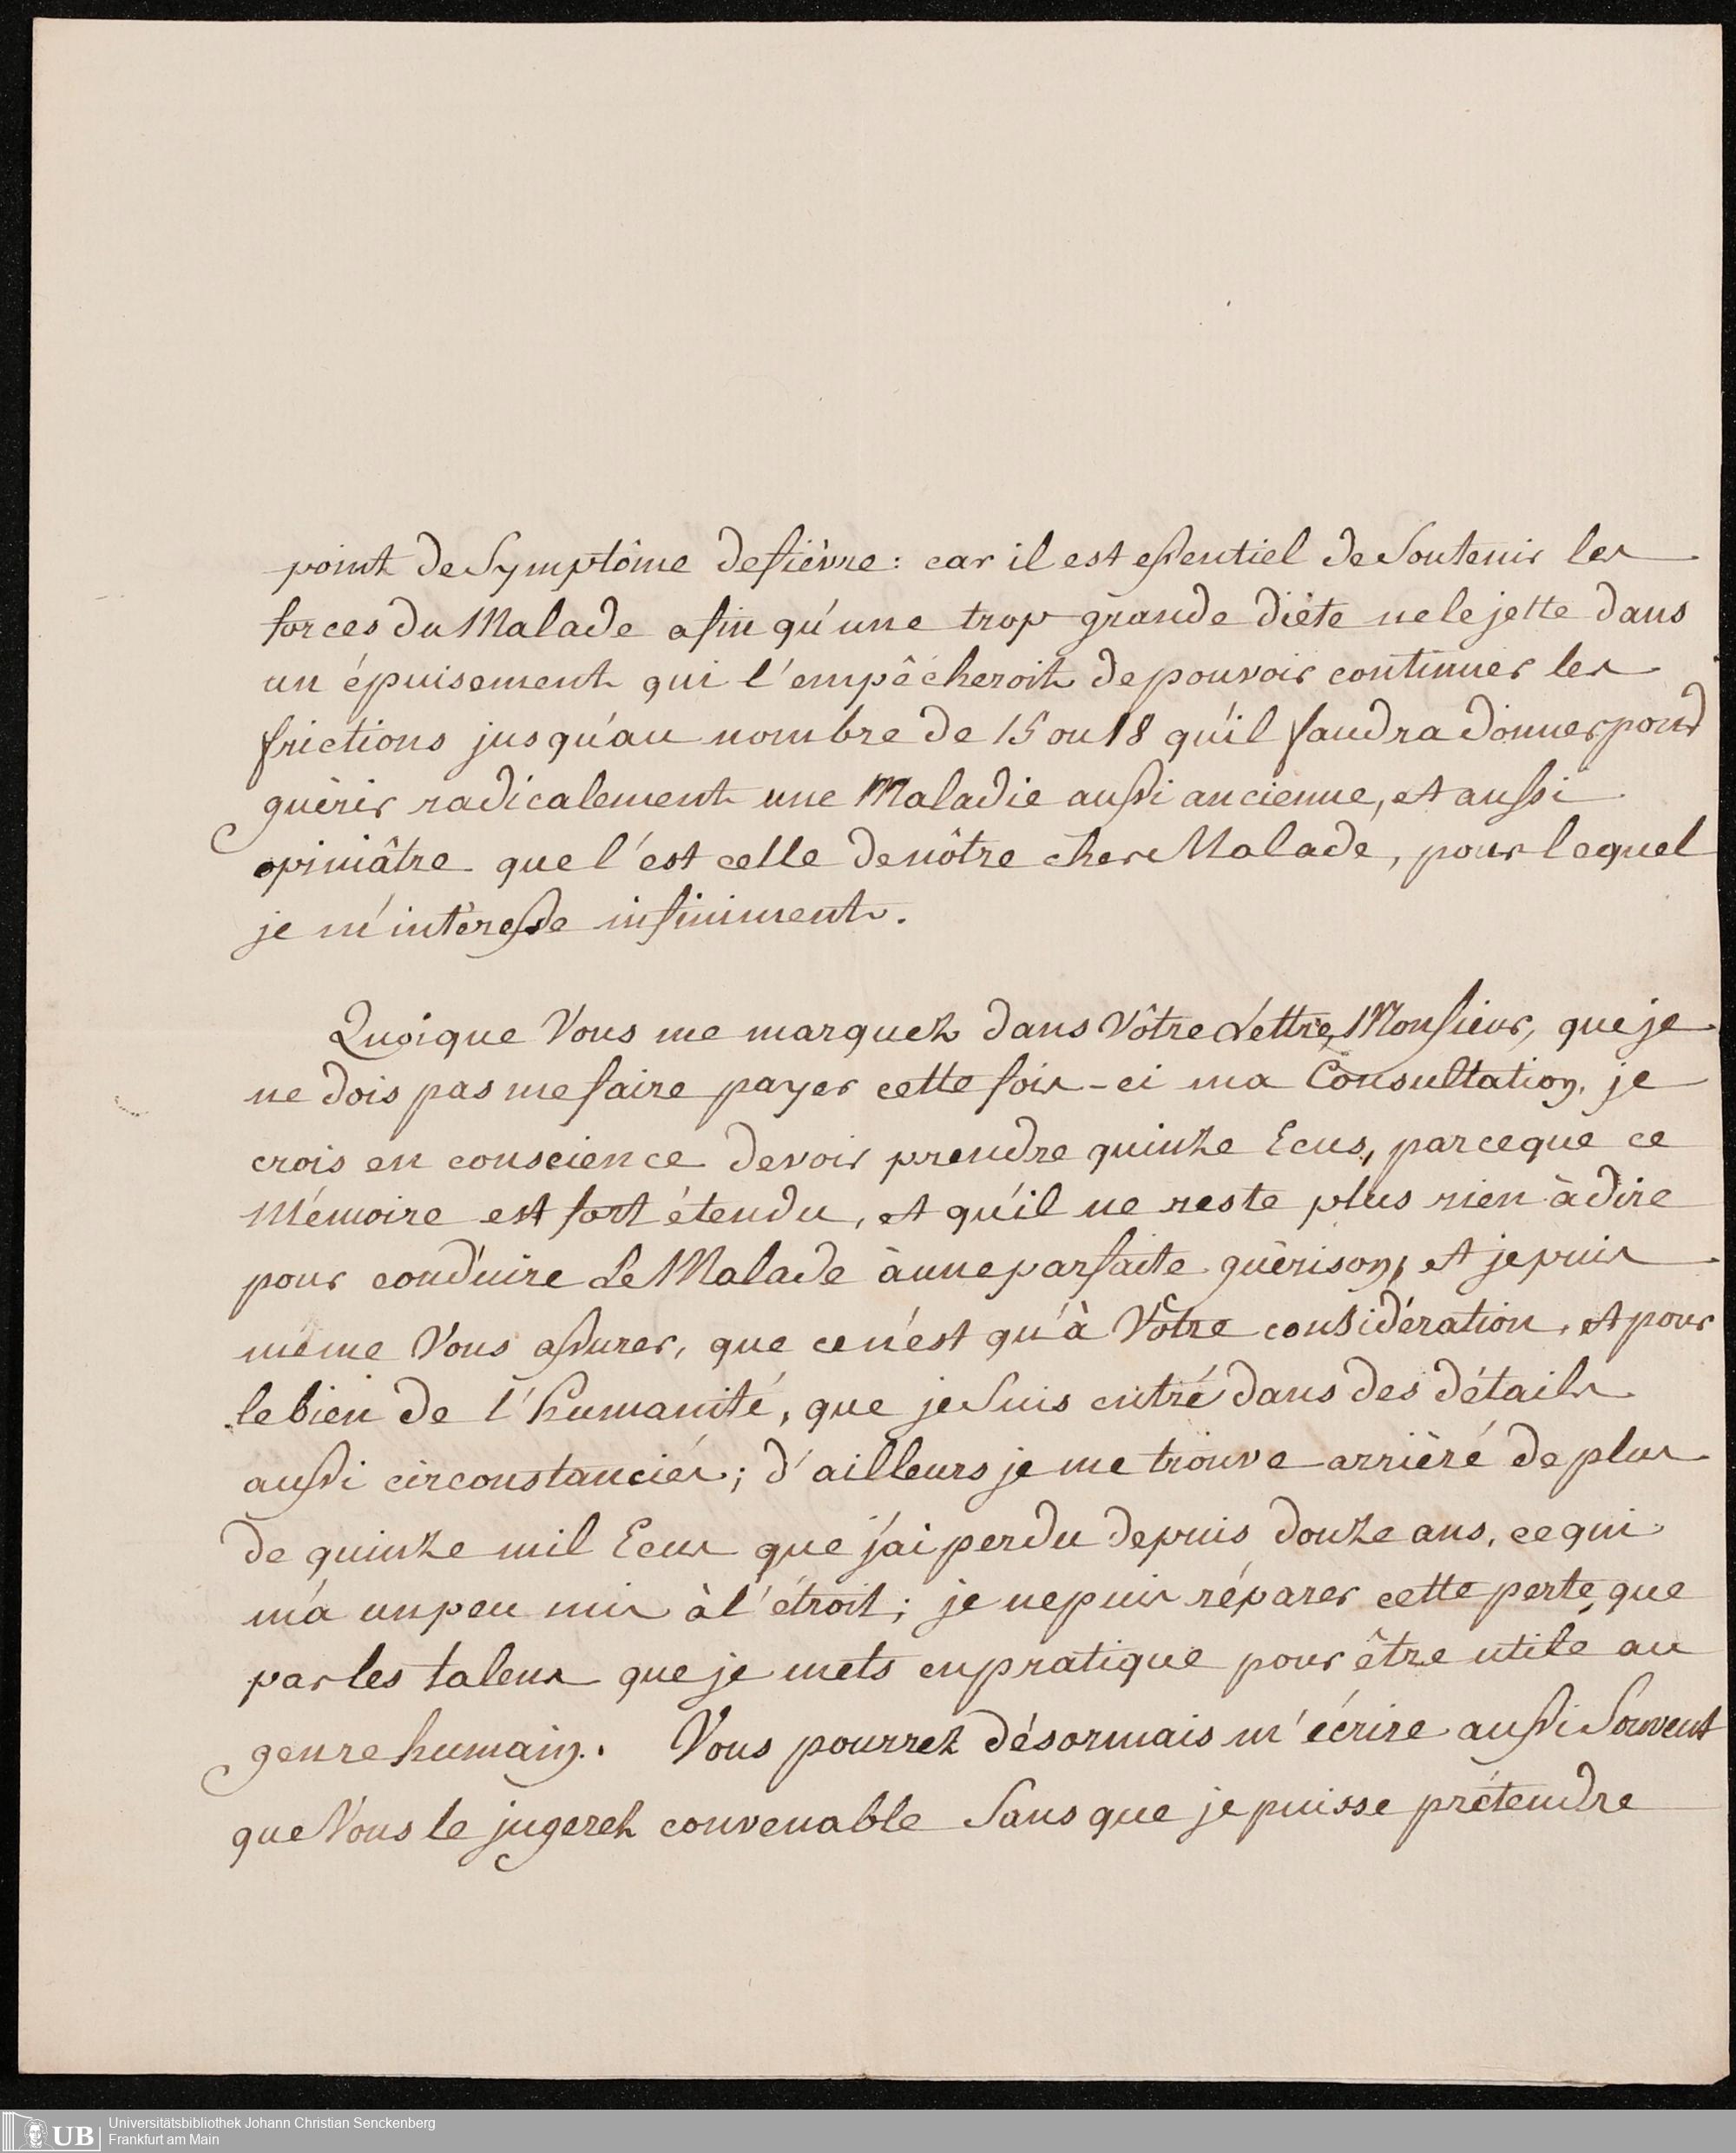 point de Symptôme de fièvre: car il est essentiel de Soutenir les
forces du Malade afin qu'une trop grande diète ne le jette dans
un épuisement qui l'empêcheroit de pouvoir continuer les
frictions jusqu'au nombre de 15 ou 18 qu'il faudra donner pour
guèrir radicalement une Maladie aussi ancienne, et aussi
opiniâtre que l'est celle de nôtre cher Malade, pour lequel
je m'intèresse infiniment.
Quoique Vous me marquez dans Vôtre Lettre, Monsieur, que je
ne dois pas me faire payer cette fois-ci ma Consultation, je
crois en conscience devoir prendre quinze Ecus, parceque ce
Mémoire est fort étendu, et qu'il ne reste plus rien à dire
pour conduire Le Malade à une parfaite guèrison, et je puis
même Vous assurer, que ce n'est qu'à Vôtre considération, et pour
le bien de l'humanité, que je Suis entré dans des détails
aussi circonstanciés; d'ailleurs je me trouve arrièré de plus
de quinze mil Ecus que j'ai perdu depuis douze ans, ce qui
m'a un peu mis à l'étroit; je ne puis réparer cette perte, que
par les talens que je mets en pratique pour être utile au
genre humain. Vous pourrez désormais m'écrire aussi Souvent
que Vous le jugerez convenable Sans que je puisse prétendre
UB
Universitätsbibliothek Johann Christian Senckenberg
Frankfurt am Main